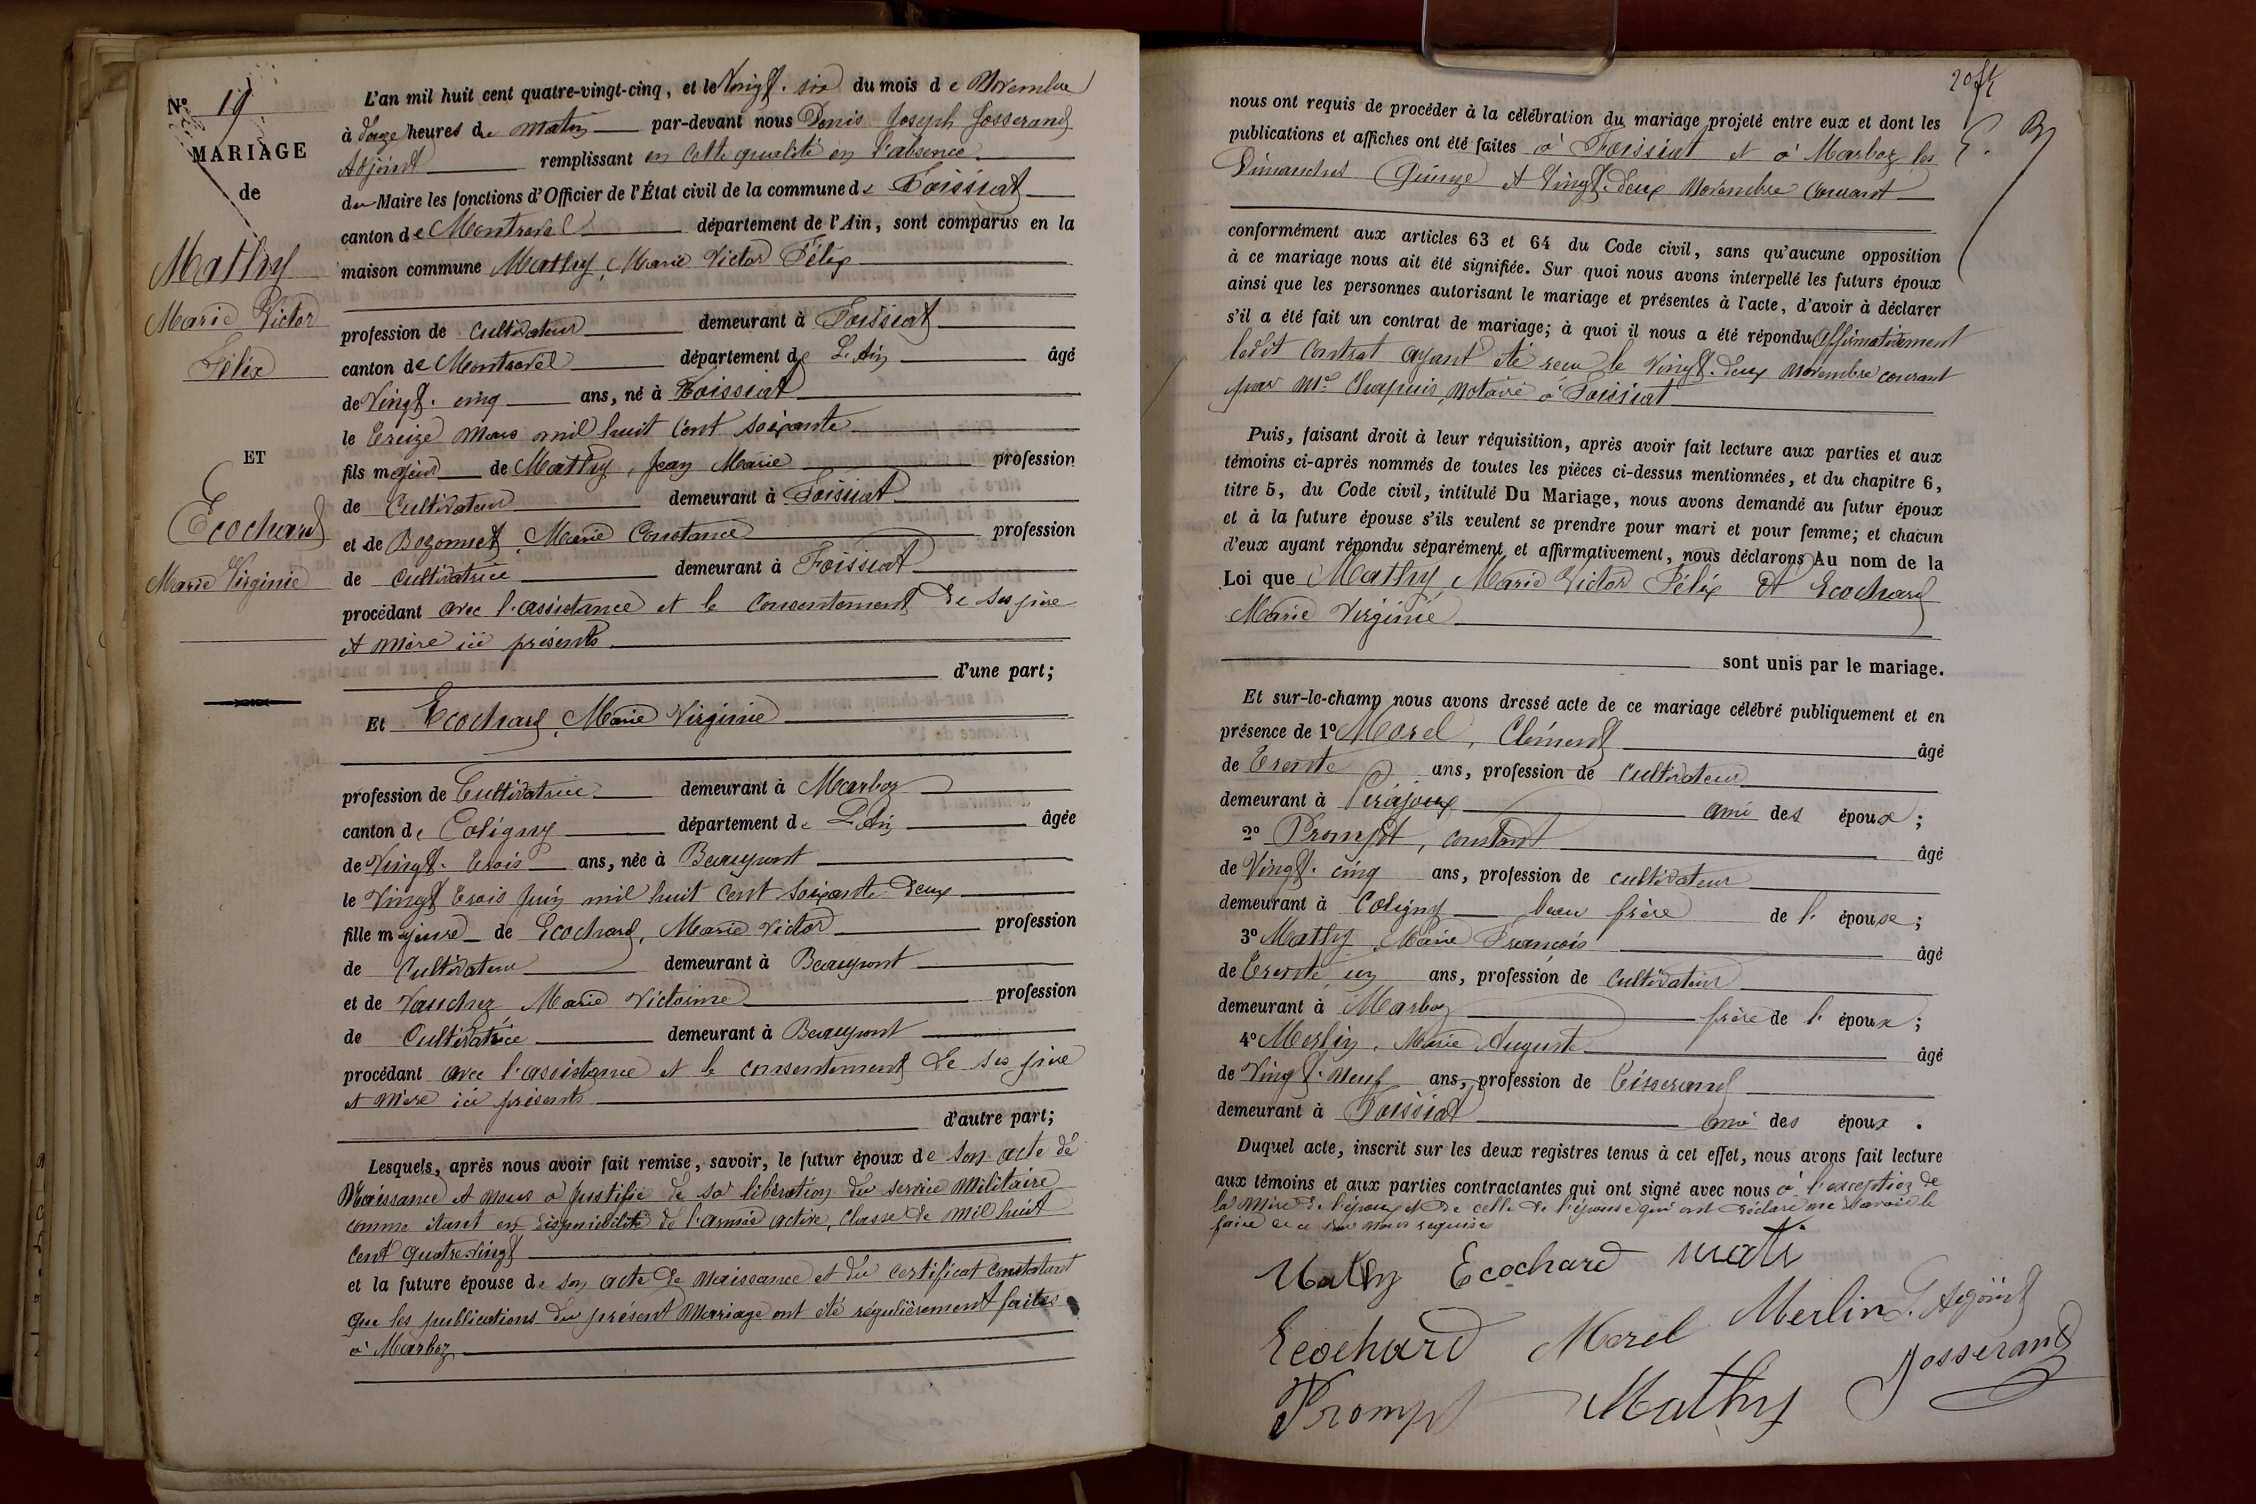 N° 19
MARIAGE
de
Mathy
Marie Victor
Félix
ET
Ecochard
Marie Virginie
L'an mil huit cent quatre-vingt-cinq, et le Vingt. six du mois de Novembre
à onze heures du matin par-devant nous Denis Joseph Josserand
Adjoint remplissant en cette qualité en l'absence
du Maire les fonctions d'Officier de l'État civil de la commune de Foissiat
canton de Montrevel département de l'Ain, sont comparus en la
maison commune Mathy, Marie Victor Félix
profession de cultivateur demeurant à Foissiat
canton de Montrevel département de L'Ain âgé
de Vingt. cinq ans, né à Foissiat
le treize Mars mil huit cent soixante
fils majeur de Mathy, Jean Marie profession
de Cultivateur demeurant à Foissiat
et de Bozonnet, Marie Constance profession
de cultivatrice demeurant à Foissiat
procédant avec l'assistance et le consentement de ses père
et mère ici présents
d'une part;
Et Ecochard, Marie Virginie
profession de Cultivatrice demeurant à Marboz
canton de Coligny département de L'Ain âgée
de Vingt. trois ans, née à Beaupont
le Vingt trois Juin mil huit cent soixante deux
fille majeure de Ecochard, Marie Victor profession
de Cultivateur demeurant à Beaupont
et de Vaucher Marie Victorine profession
de Cultivatrice demeurant à Beaupont
procédant avec l'assistance et le consentement de ses père
et mère ici présents
d'autre part;
Lesquels, après nous avoir fait remise, savoir, le futur époux de son acte de
Naissance et nous a justifié de sa libération du service Militaire
comme étant en disponibilité de l'armée active, Classe de mil huit
cent quatre vingt
et la future épouse de son acte de Naissance et du certificat constatant
que les publications du présent Mariage ont été régulièrement faites
à Marboz
20
nous ont requis de procéder à la célébration du mariage projeté entre eux et dont les
publications et affiches ont été faites à Foissiat et à Marboz les
Dimanches Quinze et Vingt. deux Novembre Courant
conformément aux articles 63 et 64 du Code civil, sans qu'aucune opposition
à ce mariage nous ait été signifiée. Sur quoi nous avons interpellé les futurs époux
ainsi que les personnes autorisant le mariage et présentes à l'acte, d'avoir à déclarer
s'il a été fait un contrat de mariage; à quoi il nous a été répondu Affirmativement
ledit Contrat ayant été reçu le Vingt. deux Novembre courant
par Me Chapuis, Notaire à Foissiat
Puis, faisant droit à leur réquisition, après avoir fait lecture aux parties et aux
témoins ci-après nommés de toutes les pièces ci-dessus mentionnées, et du chapitre 6,
titre 5, du Code civil, intitulé Du Mariage, nous avons demandé au futur époux
et à la future épouse s'ils veulent se prendre pour mari et pour femme; et chacun
d'eux ayant répondu séparément et affirmativement, nous déclarons Au nom de la
Loi que Mathy, Marie Victor Félix et Ecochard
Marie Virginie
sont unis par le mariage.
Et sur-le-champ nous avons dressé acte de ce mariage célébré publiquement et en
présence de 1° Morel, Clément âgé
de trente ans, profession de cultivateur
demeurant à Pirajoux ami des époux;
2° Prompt, constant âgé
de Vingt. cinq ans, profession de cultivateur
demeurant à Coligny beau frère de l'épouse;
3° Mathy, Marie François âgé
de trente un ans, profession de Cultivateur
demeurant à Marboz frère de l'époux;
4° Merlin, Marie Auguste âgé
de Vingt. neuf ans, profession de tisserand
demeurant à Foissiat ami des époux.
Duquel acte, inscrit sur les deux registres tenus à cet effet, nous avons fait lecture
aux témoins et aux parties contractantes qui ont signé avec nous à l'exception de
la Mère de l'époux et de celle de l'épouse qui ont déclaré ne savoir le
faire de ce par nous requises
Mathy Ecochard
Ecochard Morel Merlin L'Adjoint
Prompt Mathy Josserand